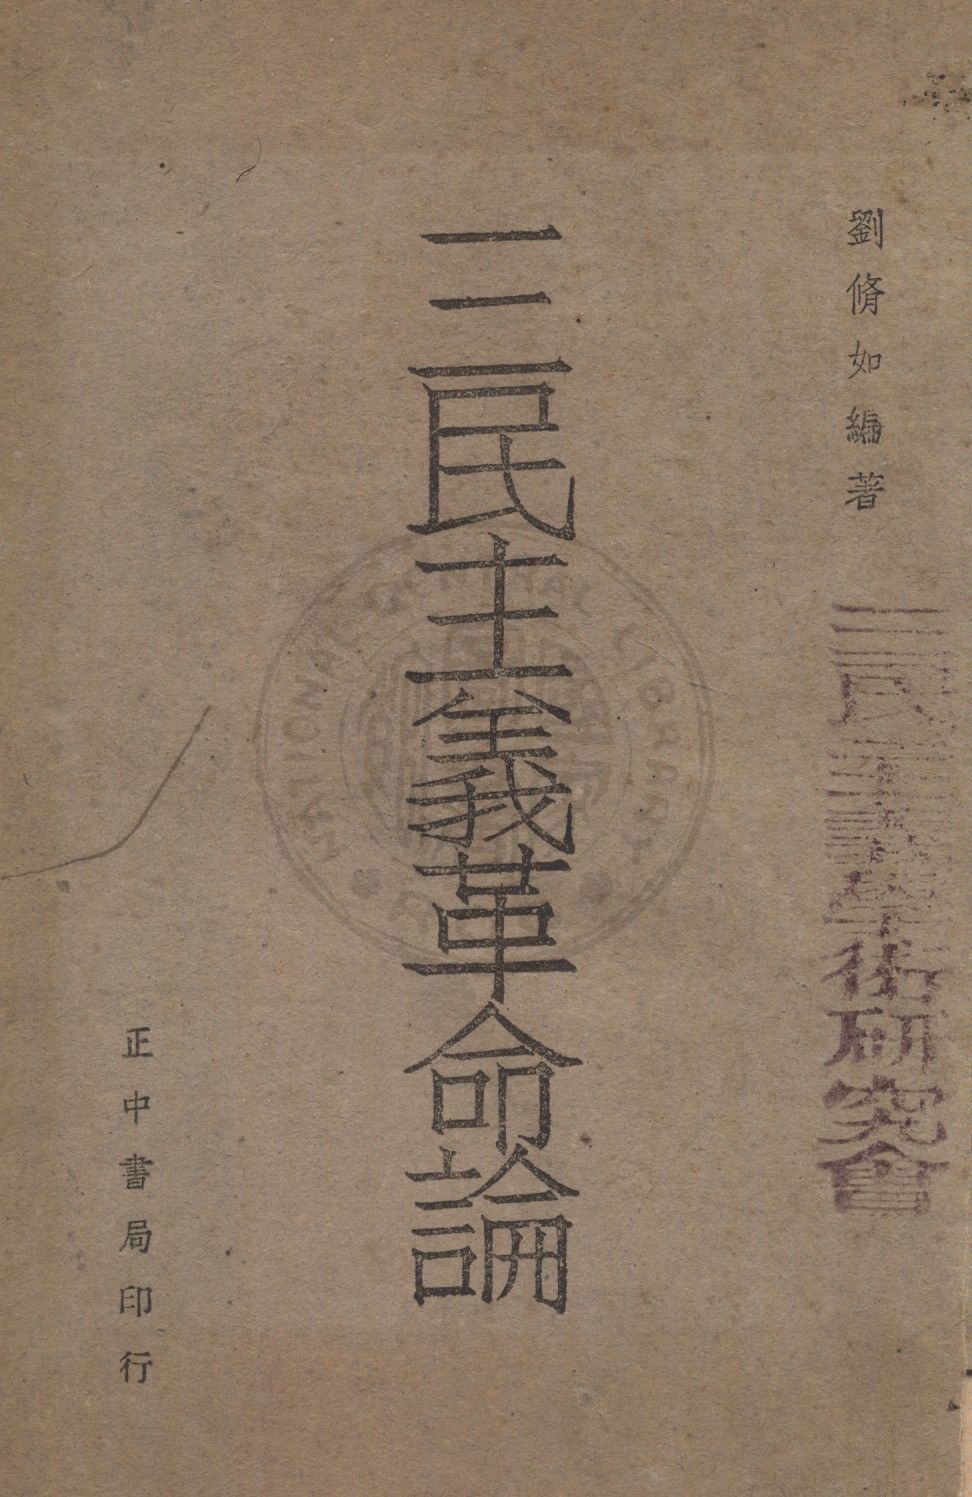 劉脩如編著
三民主義學術研究會
三民主義革命論
正中書局印行